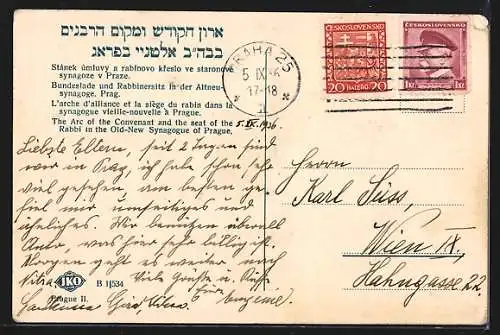 ארון הקודש ומקום הרבנים
בבה״כ אלטניי בפראג
Stánek úmluvy a rabínovo křeslo ve staronové
synagoze v Praze.
Bundeslade und Rabbinersitz in der Altneu-
synagoge. Prag.
L'arche d'alliance et la siège du rabin dans la
synagogue vieille-nouvelle à Prague.
The Arc of the Convenant and the seat of the
Rabbi in the Old-New Synagogue of Prague.
5.IX.1936.
Liebste Eltern, seit 2 Tagen sind
wir in Prag, ich habe schon sehr
viel gesehen, am besten ge-
fiel mir
ähnliches. Wir benützen überall
Auto, was hier sehr billig ist.
Morgen geht es weiter nach
Nitra. Viele Grüße u. Küsse
Eugenie
JKO
B 1|534
Prague II.
PRAHA 25
5 IX 36
17-18
ČESKOSLOVENSKO
20 HALÉŘŮ 20
ČESKOSLOVENSKO
1Kč 1Kč
Herrn
Karl Süss,
Wien IX,
Hahngasse 22.